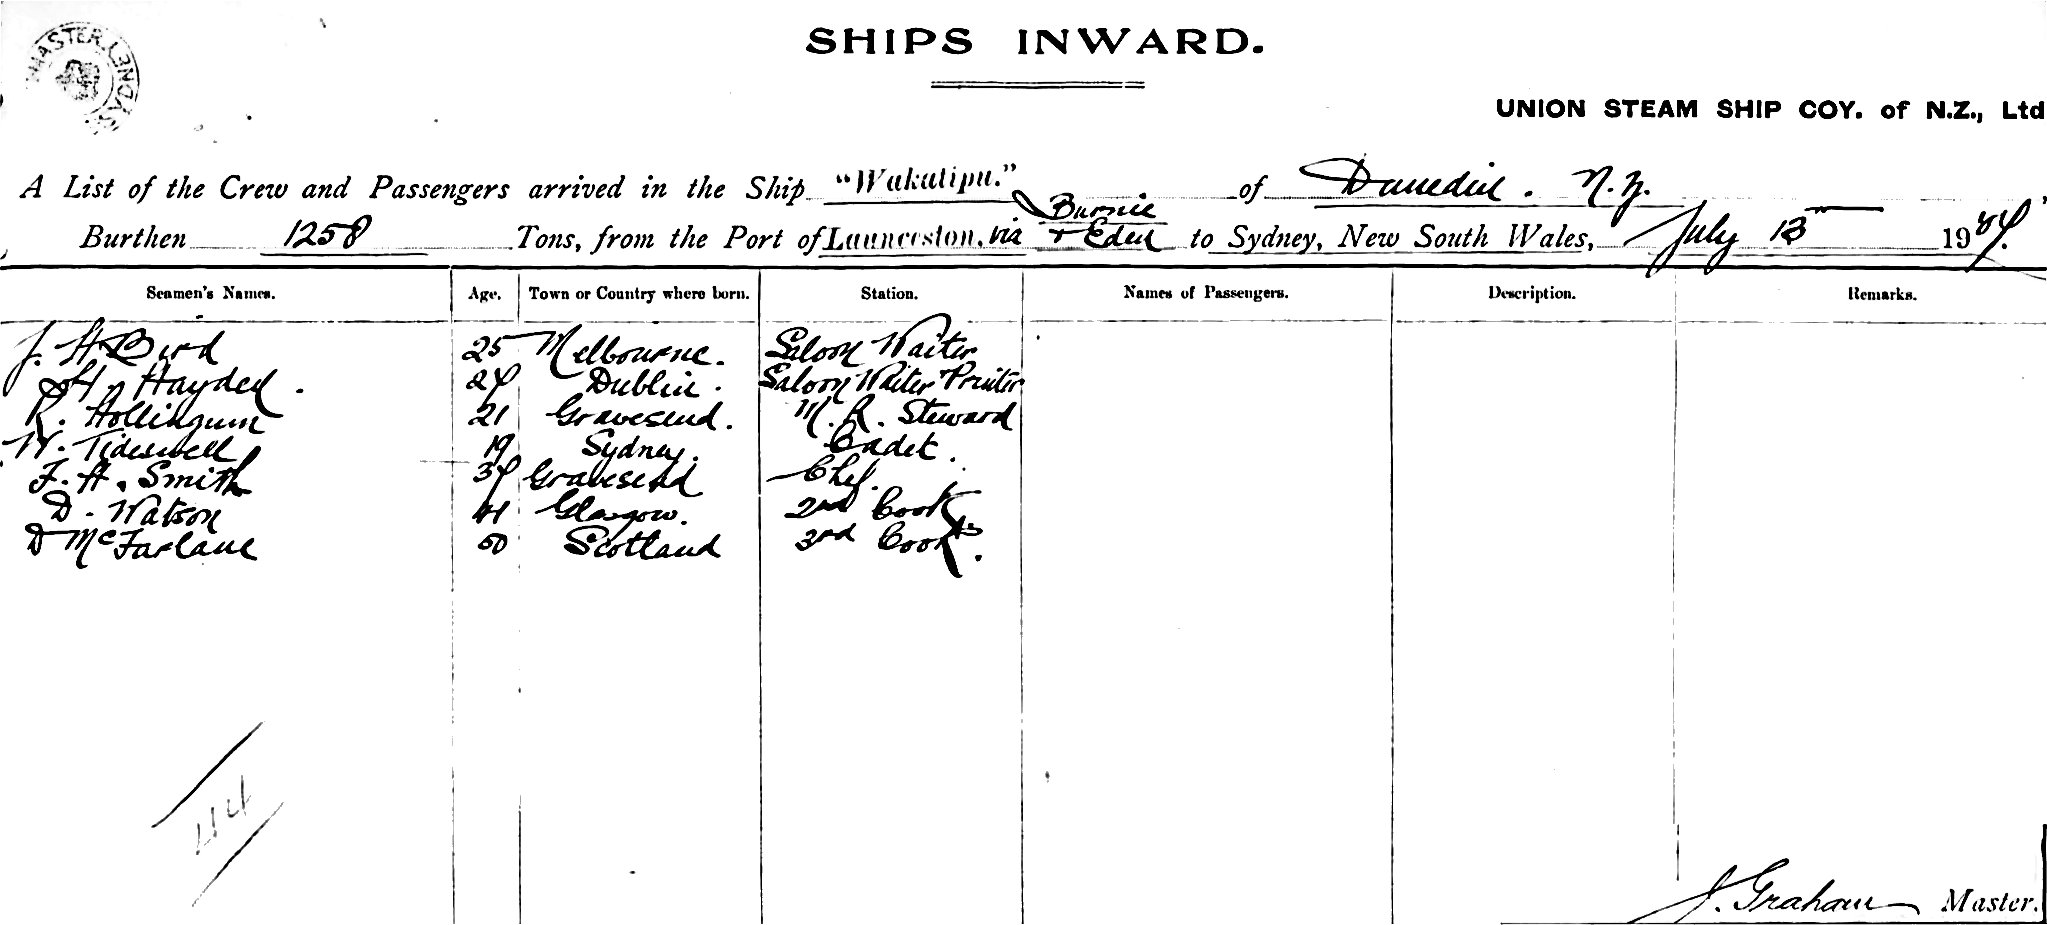 MASTER SYDNEY
SHIPS INWARD.
UNION STEAM SHIP COY. of N.Z., Ltd
A List of the Crew and Passengers arrived in the Ship "Wakatipu." of Dunedin. N.Z.
Burnie
Burthen 1258 Tons, from the Port of Launceston, via + Eden to Sydney, New South Wales, July 13 19
Seamen's Names. Age. Town or Country where born. Station. Names of Passengers. Description. Remarks.
J. H. Bird 25 Melbourne. Saloon Waiter
H. Hayden. 24 Dublin. Saloon Waiter Printer
R. Hollingum 21 Gravesend. M. R. Steward
W. Tideswell 19 Sydney. Cadet.
F. H. Smith 34 Gravesend Chef.
D. Watson 41 Glasgow. 2nd Cook
D McFarlane 50 Scotland 3rd Cook.
J. Graham Master.